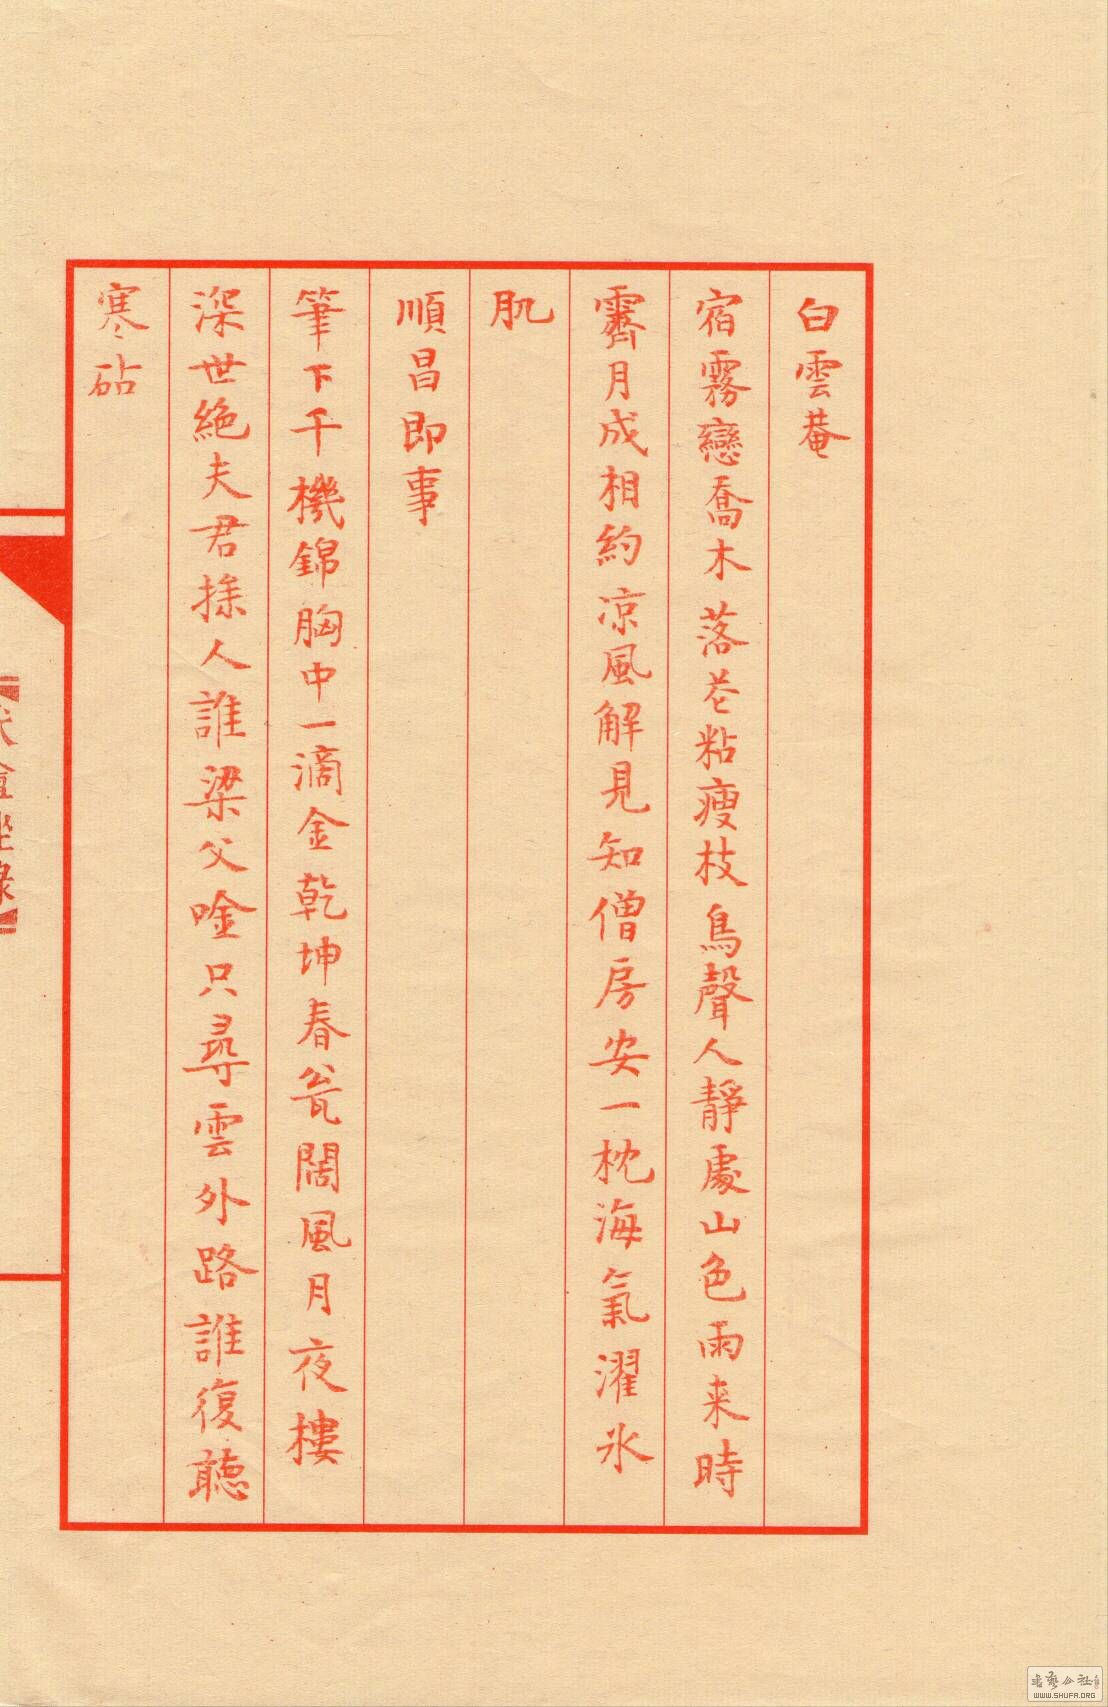 白雲菴
宿霧戀喬木落花粘瘦枝鳥聲人靜處山色雨来時
霽月成相約涼風解見知僧房安一枕海氣濯氷
肌
順昌即事
筆下千機錦胸中一滴金乾坤春瓮闊風月夜樓
深世絶夫君操人誰梁父唫只尋雲外路誰復聽
寒砧
WWW.SHUFA.ORG